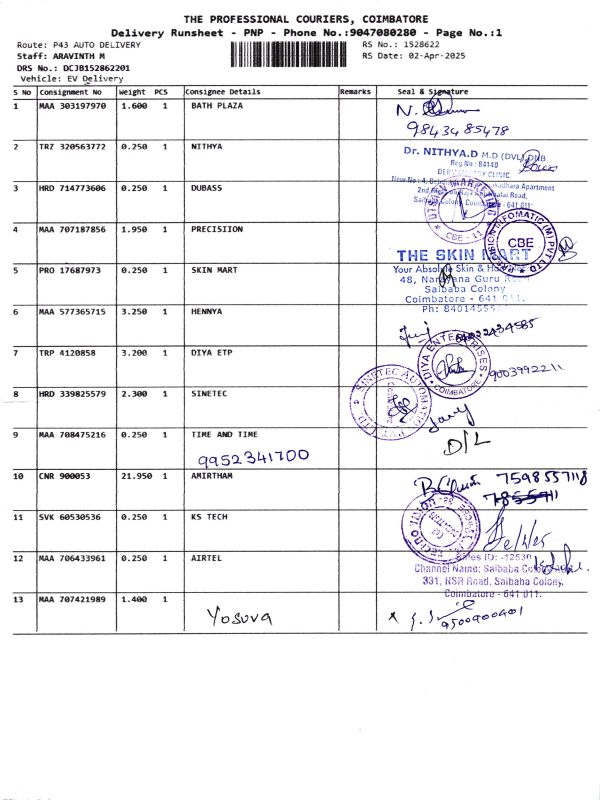 THE PROFESSIONAL COURIERS, COIMBATORE
Delivery Runsheet - PNP - Phone No.:9047080280 - Page No.:1
Route: P43 AUTO DELIVERY
RS No.: 1528622
Staff: ARAVINTH M
RS Date: 02-Apr-2025
DRS No.: DCJB152862201
Vehicle: EV Delivery
S No Consignment No Weight PCS Consignee Details Remarks Seal & Signature
1 MAA 303197970 1.600 1 BATH PLAZA
N.
9843485478
2 TRZ 320563772 0.250 1 NITHYA
Dr. NITHYA.D M.D (DVL) DNB
Reg No : 84140
DERMATOLOGY CLINIC
3 HRD 714773606 0.250 1 DUBASS
4 MAA 707187856 1.950 1 PRECISIION
CBE - 11
PRECISION INFOMATIC (M) PVT LTD
CBE
THE SKIN MART
5 PRO 17687973 0.250 1 SKIN MART
Your Absolute Skin &
48, Narayana Guru
Saibaba Colony
Coimbatore - 641 011.
6 MAA 577365715 3.250 1 HENNYA
7 TRP 4120858 3.200 1 DIYA ETP
DIYA ENTERPRISES
COIMBATORE
9003992211
8 HRD 339825579 2.300 1 SINETEC
SINETEC AUTOMATION PVT LTD
9 MAA 708475216 0.250 1 TIME AND TIME
9952341700
D/L
10 CNR 900053 21.950 1 AMIRTHAM
7598557118
11 SVK 60530536 0.250 1 KS TECH
12 MAA 706433961 0.250 1 AIRTEL
Sales ID: -12530
Channel Name: Saibaba Colony
331, NSR Road, Saibaba Colony,
Coimbatore - 641 011.
13 MAA 707421989 1.400 1
Yosuva
9500900401